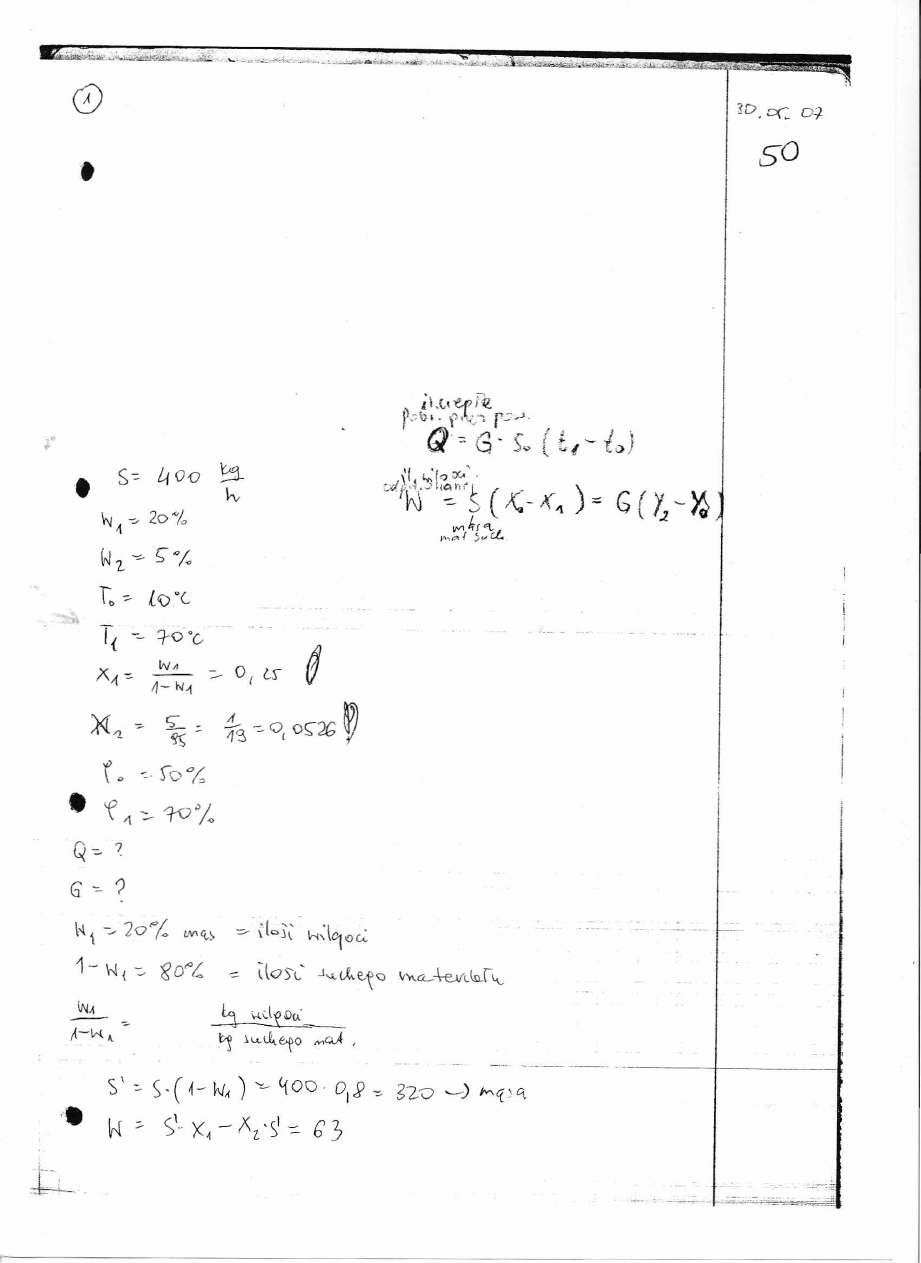 1
30.05.07
50
il. ciepła
pobr. przez pow.
Q = G · S₀ (t₁ - t₀)
S = 400 kg/h
il. wilgoci
W = S (X₀ - X₁) = G (Y₂ - Y₀)
masa
mat such.
W₁ = 20%
W₂ = 5%
T₀ = 10°C
T₁ = 70°C
X₁ = W₁/1-W₁ = 0,25
X₂ = 5/95 = 1/19 = 0,0526
φ₀ = 50%
φ₁ = 70%
Q = ?
G = ?
W₁ = 20% mas = ilość wilgoci
1-W₁ = 80% = ilość suchego materiału
W₁/1-W₁ = kg wilgoci/kg suchego mat.
S' = S·(1-W₁) = 400 · 0,8 = 320 → masa
W = S'·X₁ - X₂·S' = 63